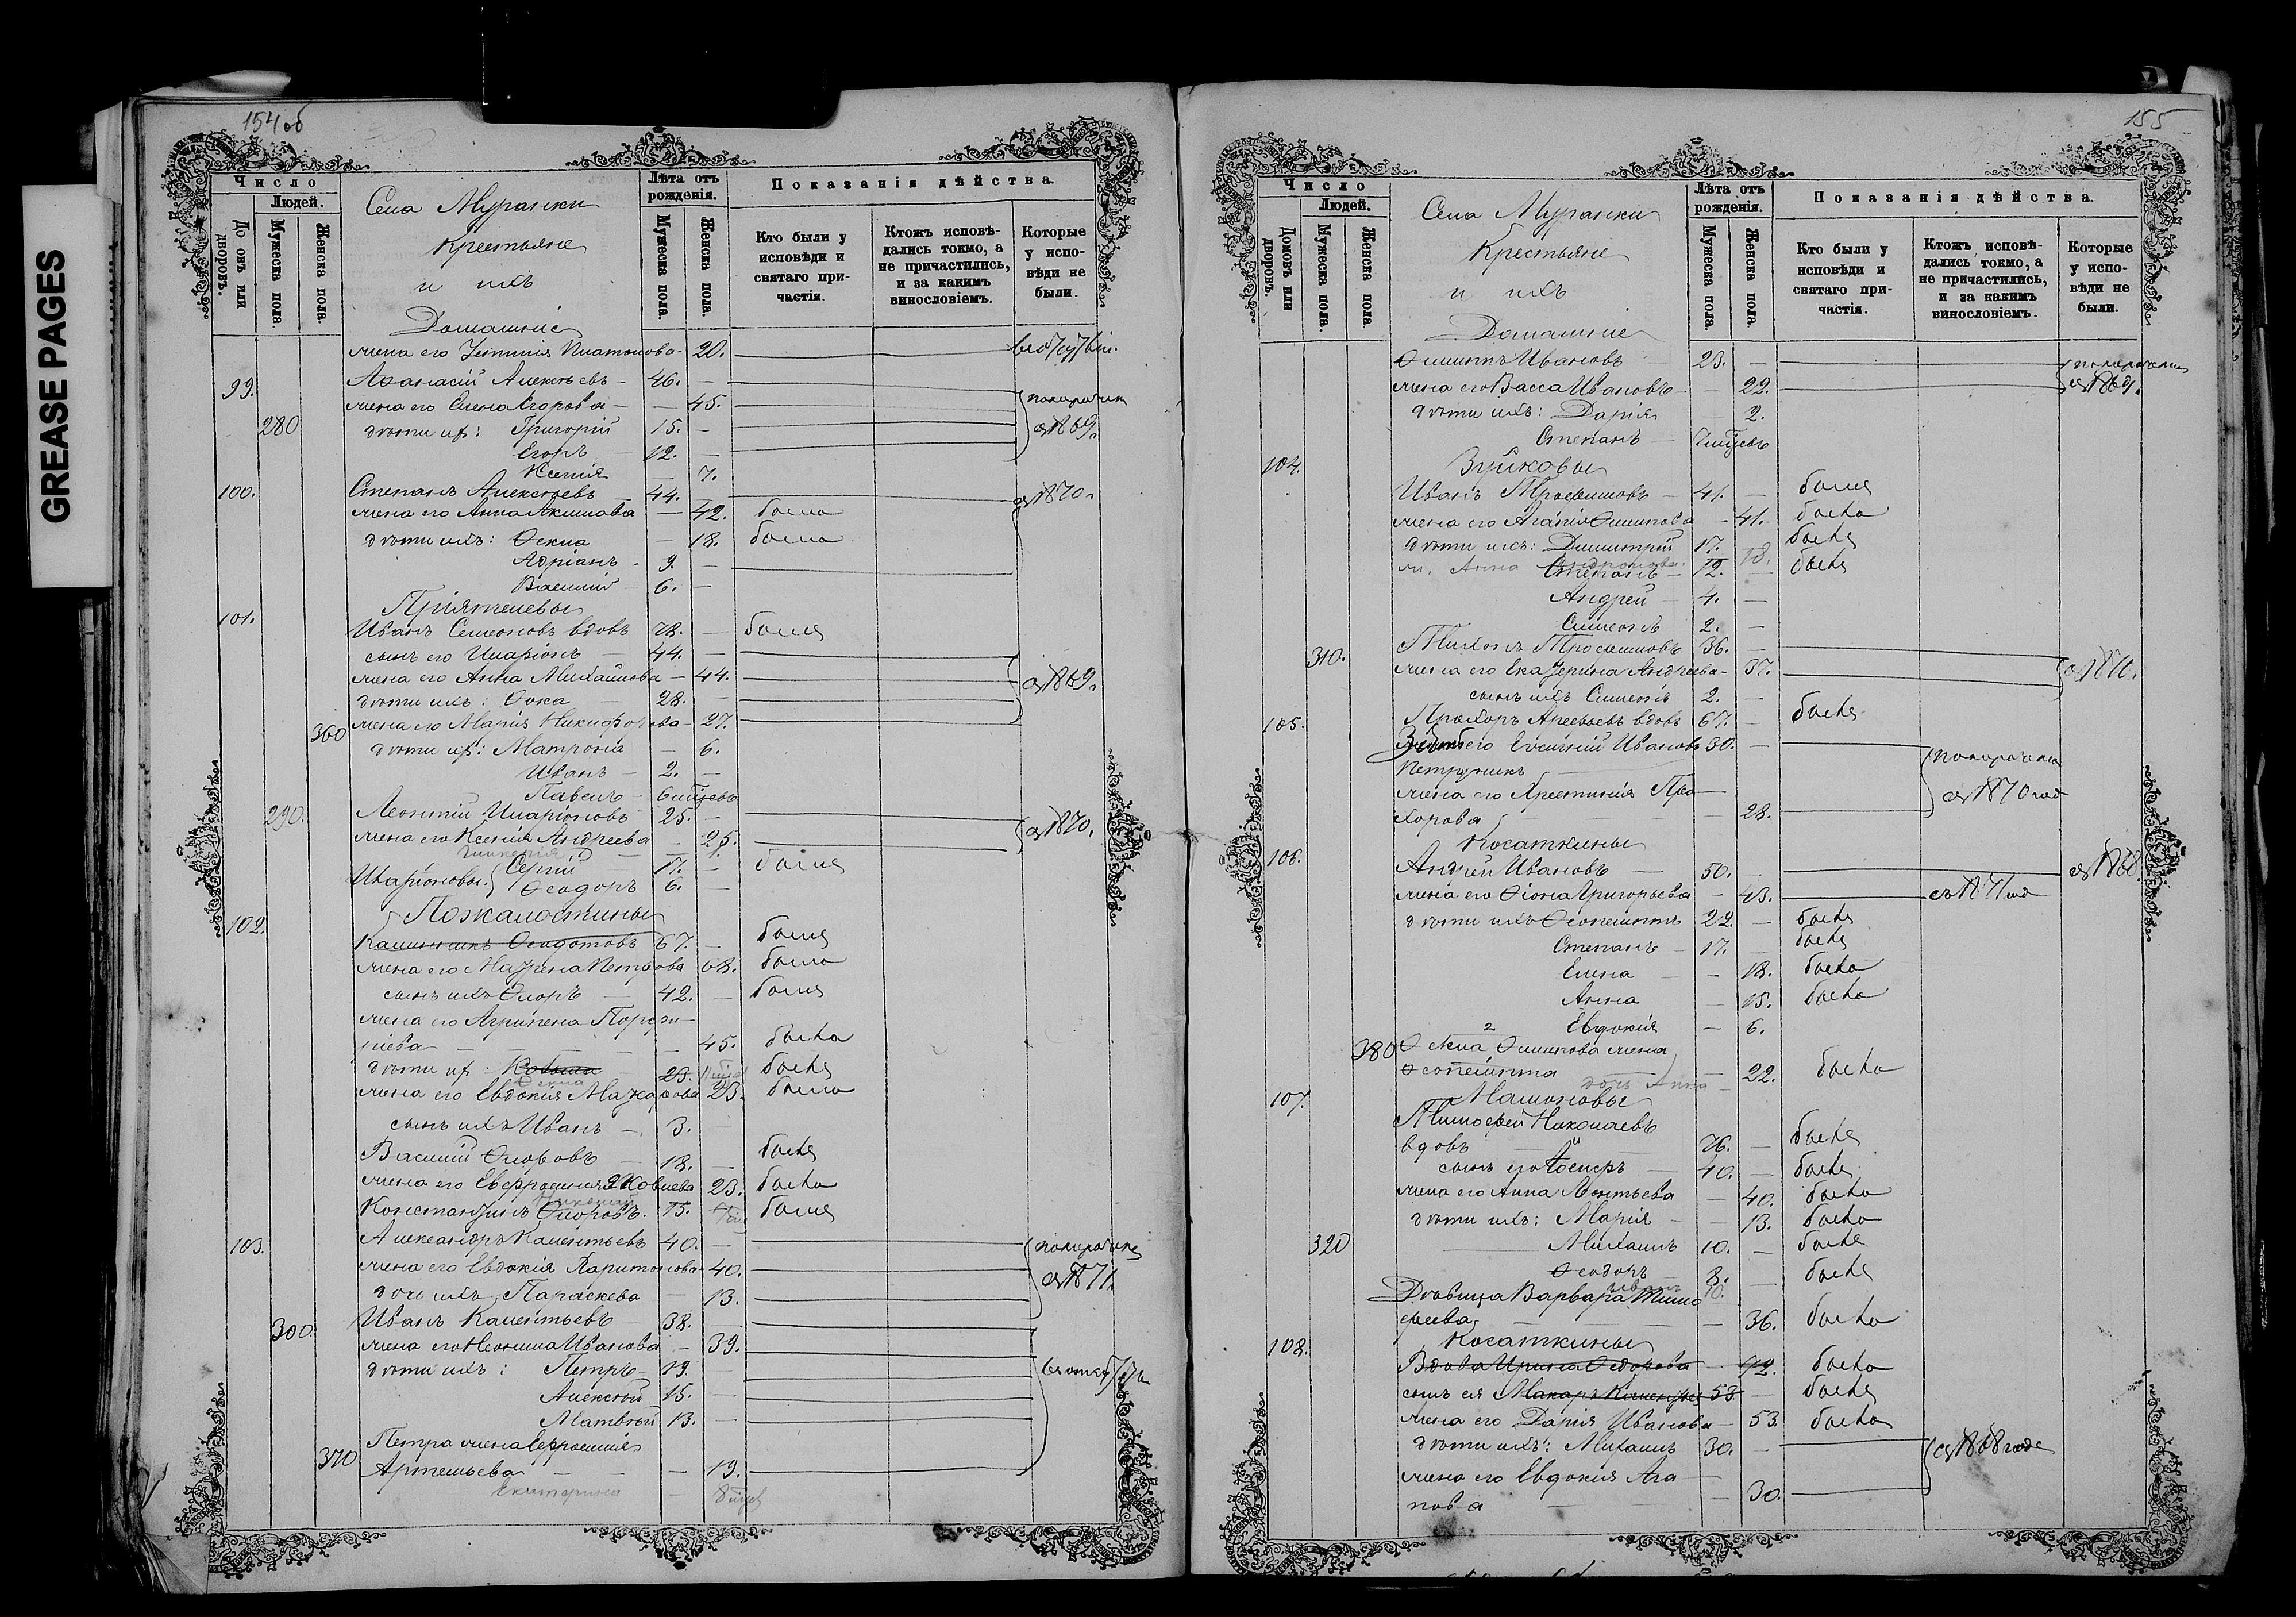 GREASE PAGES
154 об
Число
Людей.
До овъ или дворовъ.
Мужеска пола.
Женска пола.
Села Муранки
Крестьяне
и ихъ
Домашніе
Лѣта отъ рожденія.
Мужеска пола.
Женска пола.
Показанія дѣйства.
Кто были у исповѣди и святаго причастія.
Ктожъ исповѣдались токмо, а не причастились, и за какимъ винословіемъ.
Которые у исповѣди не были.
жена его Платонова - 20.
99. Аѳанасій Алексѣевъ - 46. -
жена его Елена Егорова - - 45.
280 дѣти их: Григорій 15. -
Егоръ 12. -
Ксенія 7.
с 1869.
100. Степанъ Алексѣевъ - 44. с 1870.
жена его Анна Акимова - 42. была
дѣти ихъ: Ѳекла - 18. была
Адріанъ - 9. -
Василій - 6. -
Пріятелевы
101. Иванъ Семеоновъ вдовъ 78. - былъ
сынъ его Иларіонъ - 44. -
жена его Анна Михайлова - 44. с 1869.
дѣти ихъ: Ѳока - 28. -
360 жена его Марія Никифорова - 27.
дѣти их: Матрона - 6.
Иванъ - 2. -
Павелъ - 6 мѣсяцевъ
290. Леонтій Иларіоновъ 25. - с 1870.
жена его Ксенія Андреева - 25.
Гликерія 1.
Иларіоновы: Сергій 17. - былъ
Ѳеодоръ 6. -
Пожалостины
102. Калинникъ Ѳеодотовъ 67. - былъ
жена его Марина Петрова 68. была
сынъ ихъ Флоръ - 42. - былъ
жена его Агрипена Порфи-
рьева - - - 45. была
дѣти их: 23. былъ
Ѳекла
жена его Евдокія Макарова 23. была
сынъ ихъ Иванъ - 3.
Василій Флоровъ - 18. - былъ
жена его Евфросинія 23. была
Николай
Константинъ Флоровъ. 15. былъ
103. Александръ Калентьевъ 40. -
жена его Евдокія Харитонова - 40.
дочь ихъ Параскева - 13. с 1871.
300. Иванъ Калентьевъ - 38. -
жена его Неонила Иванова - 39.
дѣти ихъ: Петръ - 19. -
Алексѣй 15. -
Матвѣй 13. -
Петра жена Ефросинія
370 Артемьева - - - 19.
Екатерина - 8 мѣсяц
155
Число
Людей.
Домовъ или дворовъ.
Мужеска пола.
Женска пола.
Села Муранки
Крестьяне
и ихъ
Домашніе
Лѣта отъ рожденія.
Мужеска пола.
Женска пола.
Показанія дѣйства.
Кто были у исповѣди и святаго причастія.
Ктожъ исповѣдались токмо, а не причастились, и за какимъ винословіемъ.
Которые у исповѣди не были.
Филиппъ Ивановъ - 23.
жена его Васса Иванова - - 22. с 1869.
дѣти ихъ: Дарія - 2.
Степанъ - мѣсяцевъ
104. Зуйковы
Иванъ Трофимовъ - 41. - былъ
жена его Агапія Филипова - 41. была
дѣти ихъ: Димитрій 17. былъ
ж. Анна 18.
Степанъ - 12. - былъ
Андрей - 4. -
Симеонъ 2. -
310. Тихонъ Трофимовъ 36. -
жена его Екатерина Андреева - 37. с 1870.
сынъ ихъ Симеонъ 2. -
105. Прохоръ Арефьевъ вдовъ 67. - былъ
Зять его Евгеній Ивановъ 30. -
жена его Христинія Про-
хорова - - - 28. с 1870 год
Косаткины
106. Андрей Ивановъ - 50. - с 1868.
жена его Ѳіона Григорьева - 43. с 1871 год
дѣти ихъ Ѳеопемптъ 22. - былъ
Степанъ - 17. - былъ
Елена - 18. была
Анна - 15. была
Евдокія - 6.
380 Ѳекла Филипова жена
Ѳеопемпта - 22. была
дочь Анна
107. Машоновы
Тимофей Николаевъ
вдовъ 76. - былъ
сынъ его Іосифъ - 40. - былъ
жена его Анна Леонтьева - 40. была
дѣти ихъ: Марія - - 13. была
320 Михаилъ 10. - былъ
Ѳеодоръ 8. - былъ
Дѣвица Варвара Тимо-
феева - - 36. была
108. Косаткины
Вдова Ирина Ѳедорова - 72. была
сынъ ея Макаръ 53 - былъ
жена его Дарія Иванова - 53. была
дѣти ихъ: Михаилъ 30. - с 1868 года
жена его Евдокія Ага-
пова - 30.